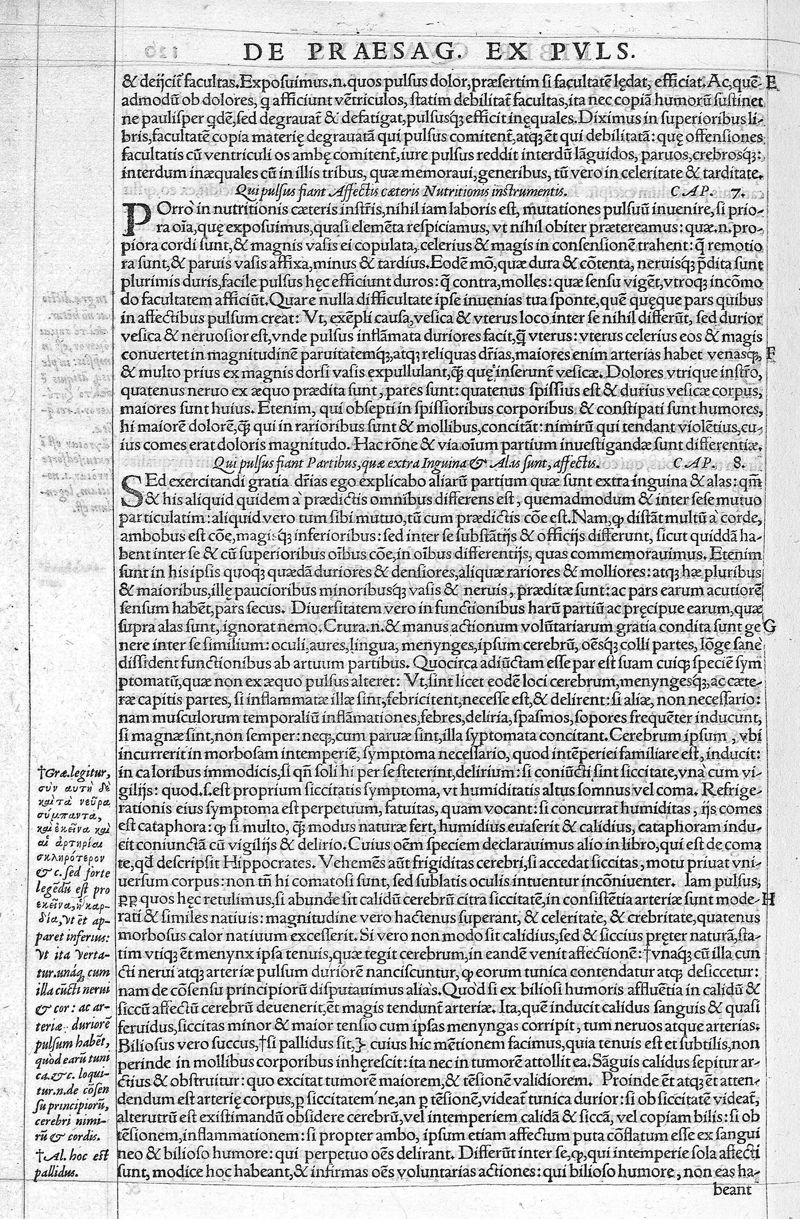 DE PRAESAG. EX PVLS.
& deijcit facultas. Exposuimus.n. quos pulsus dolor, præsertim si facultatē lędat, efficiat. Ac, quē- E
admodū ob dolores, q afficiunt vētriculos, statim debilitat facultas, ita nec copiā humorū sustinet
ne paulisper qdē, sed degrauat & defatigat, pulsusq; efficit inęquales. Diximus in superioribus li-
bris, facultatē copia materię degrauatā qui pulsus comitent, atq; ēt qui debilitatā: quę offensiones
facultatis cū ventriculi os ambę comitent, iure pulsus reddit interdū lāguidos, paruos, crebrosq;:
interdum inæquales cū in illis tribus, quæ memoraui, generibus, tū vero in celeritate & tarditate.
Qui pulsus fiant Affectis cæteris Nutritionis instrumentis. CAP. 7.
POrro in nutritionis cæteris instr̄is, nihil iam laboris est, mutationes pulsuū inuenire, si prio-
ra oīa, quę exposuimus, quasi elemēta respiciamus, vt nihil obiter prætereamus: quæ.n. pro-
piora cordi sunt, & magnis vasis ei copulata, celerius & magis in consensionē trahent: q̄ remotio
ra sunt, & paruis vasis affixa, minus & tardius. Eodē mō, quæ dura & cōtenta, neruisq; p̄dita sunt
plurimis duris, facile pulsus hęc efficiunt duros: q̄ contra, molles: quæ sensu vigēt, vtroq; incōmo
do facultatem afficiūt. Quare nulla difficultate ipse inuenias tua sponte, quē quęque pars quibus
in affectibus pulsum creat: Vt, exēpli causa, vesica & vterus loco inter se nihil differūt, sed durior
vesica & neruosior est, vnde pulsus inflāmata duriores facit, q̄ vterus: vterus celerius eos & magis
conuertet in magnitudinē paruitatemq;, atq; reliquas dr̄ias, maiores enim arterias habet venasq;, F
& multo prius ex magnis dorsi vasis expullulant, q̄ quę inserunt vesicæ. Dolores vtrique instr̄o,
quatenus neruo ex æquo prædita sunt, pares sunt: quatenus spissius est & durius vesicæ corpus,
maiores sunt huius. Etenim, qui obsepti in spissioribus corporibus & constipati sunt humores,
hi maiorē dolorē, q̄ qui in rarioribus sunt & mollibus, concitāt: nimirū qui tendant violētius, cu-
ius comes erat doloris magnitudo. Hac rōne & via oīum partium inuestigandæ sunt differentiæ.
Qui pulsus fiant Partibus, quæ extra Inguina & Alas sunt, affectis. CAP. 8.
SEd exercitandi gratia dr̄ias ego explicabo aliarū partium quæ sunt extra inguina & alas: qm̄
& his aliquid quidem a prædictis omnibus differens est, quemadmodum & inter sese mutuo
particulatim: aliquid vero tum sibi mutuo, tū cum prædictis cōe est. Nam, ꝙ distāt multū a corde,
ambobus est cōe, magisq; inferioribus: sed inter se substātijs & officijs differunt, sicut quiddā ha-
bent inter se & cū superioribus oībus cōe, in oībus differentijs, quas commemorauimus. Etenim
sunt in his ipsis quoq; quædā duriores & densiores, aliquæ rariores & molliores: atq; hæ pluribus
& maioribus, illę paucioribus minoribusq; vasis & neruis, præditæ sunt: ac pars earum acutiorē
sensum habēt, pars secus. Diuersitatem vero in functionibus harū partiū ac pręcipue earum, quæ
supra alas sunt, ignorat nemo. Crura.n. & manus actionum volūtariarum gratia condita sunt ge G
nere inter se similium: oculi, aures, lingua, menynges, ipsum cerebrū, oēsq; colli partes, lōge sane
dissident functionibus ab artuum partibus. Quocirca adiūctam esse par est suam cuiq; speciē sym
ptomatū, quæ non ex æquo pulsus alteret: Vt, sint licet eodē loci cerebrum, menyngesq;, ac cæte-
ræ capitis partes, si inflammatæ illæ sint, febricitent, necesse est, & delirent: si aliæ, non necessario:
nam musculorum temporaliū inflāmationes, febres, deliria, spasmos, sopores frequēter inducunt,
si magnæ sint, non semper: neq;, cum paruæ sint, illa syptomata concitant. Cerebrum ipsum, vbi
incurrerit in morbosam intemperiē, symptoma necessario, quod intēperiei familiare est, inducit:
in caloribus immodicis, si qn̄ soli hi per se steterint, delirium: si coniūcti sint siccitate, vna cum vi-
gilijs: quod.s. est proprium siccitatis symptoma, vt humiditatis altus somnus vel coma. Refrige-
rationis eius symptoma est perpetuum, fatuitas, quam vocant: si concurrat humiditas, ijs comes
est cataphora: ꝙ si multo, q̄ modus naturæ fert, humidius euaserit & calidius, cataphoram indu-
cit coniunctā cū vigilijs & delirio. Cuius oēm speciem declarauimus alio in libro, qui est de coma
te, qd̄ descripsit Hippocrates. Vehemēs aūt frigiditas cerebri, si accedat siccitas, motu priuat vni-
uersum corpus: non tn̄ hi comatosi sunt, sed sublatis oculis intuentur incōniuenter. Iam pulsus,
pp quos hęc retulimus, si abunde sit calidū cerebrū citra siccitatē, in consistētia arteriæ sunt mode- H
rati & similes natiuis: magnitudine vero hactenus superant, & celeritate, & crebritate, quatenus
morbosus calor natiuum excesserit. Si vero non modo sit calidius, sed & siccius pręter naturā, sta-
tim vtiq; ēt menynx ipsa tenuis, quæ tegit cerebrum, in eandē venit affectionē: †vnaq; cū illa cun
cti nerui atq; arteriæ pulsum duriorē nanciscuntur, ꝙ eorum tunica contendatur atq; desiccetur:
nam de cōsensu principiorū disputauimus alias. Quod si ex biliosi humoris affluētia in calidū &
siccū affectū cerebrū deuenerit, ēt magis tendunt arteriæ. Ita, quē inducit calidus sanguis & quasi
feruidus, siccitas minor & maior tensio cum ipsas menyngas corripit, tum neruos atque arterias.
Biliosus vero succus, †si pallidus sit, cuius hic mētionem facimus, quia tenuis est et subtilis, non
perinde in mollibus corporibus inhęrescit: ita nec in tumorē attollit ea. Sāguis calidus sepitur ar-
ctius & obstruitur: quo excitat tumorē maiorem, & tēsionē validiorem. Proinde ēt atq; ēt atten-
dendum est arterię corpus, p siccitatem ne, an p tēsionē, videat tunica durior: si ob siccitatē videat,
alterutrū est existimandū obsidere cerebrū, vel intemperiem calidā & siccā, vel copiam bilis: si ob
tēsionem, inflammationem: si propter ambo, ipsum etiam affectum puta cōflatum esse ex sangui
neo & bilioso humore: qui perpetuo oēs delirant. Differūt inter se, ꝙ, qui intemperie sola affecti
sunt, modice hoc habeant, & infirmas oēs voluntarias actiones: qui bilioso humore, non eas ha-
beant
†Græ. legitur,
σὺν αυτῇ δὲ
καὶ τὰ νεῦρα
σύμπαντα,
καὶ ἐκεῖνα καὶ
αἱ ἀρτηρίαι
σκληρότερον
&c. sed forte
legēdū est pro
ἐκεῖνα, ἡ καρ-
δία, Vt et ap-
paret inferius:
Vt ita verta-
tur. unáq; cum
illa cūcti nerui
& cor: ac ar-
teriæ duriorē
pulsum habēt,
quod earū tuni
ca. &c. loqui-
tur.n. de cōsen
su principiorū,
cerebri nimi-
rū & cordis.
†Al. hoc est
pallidus.